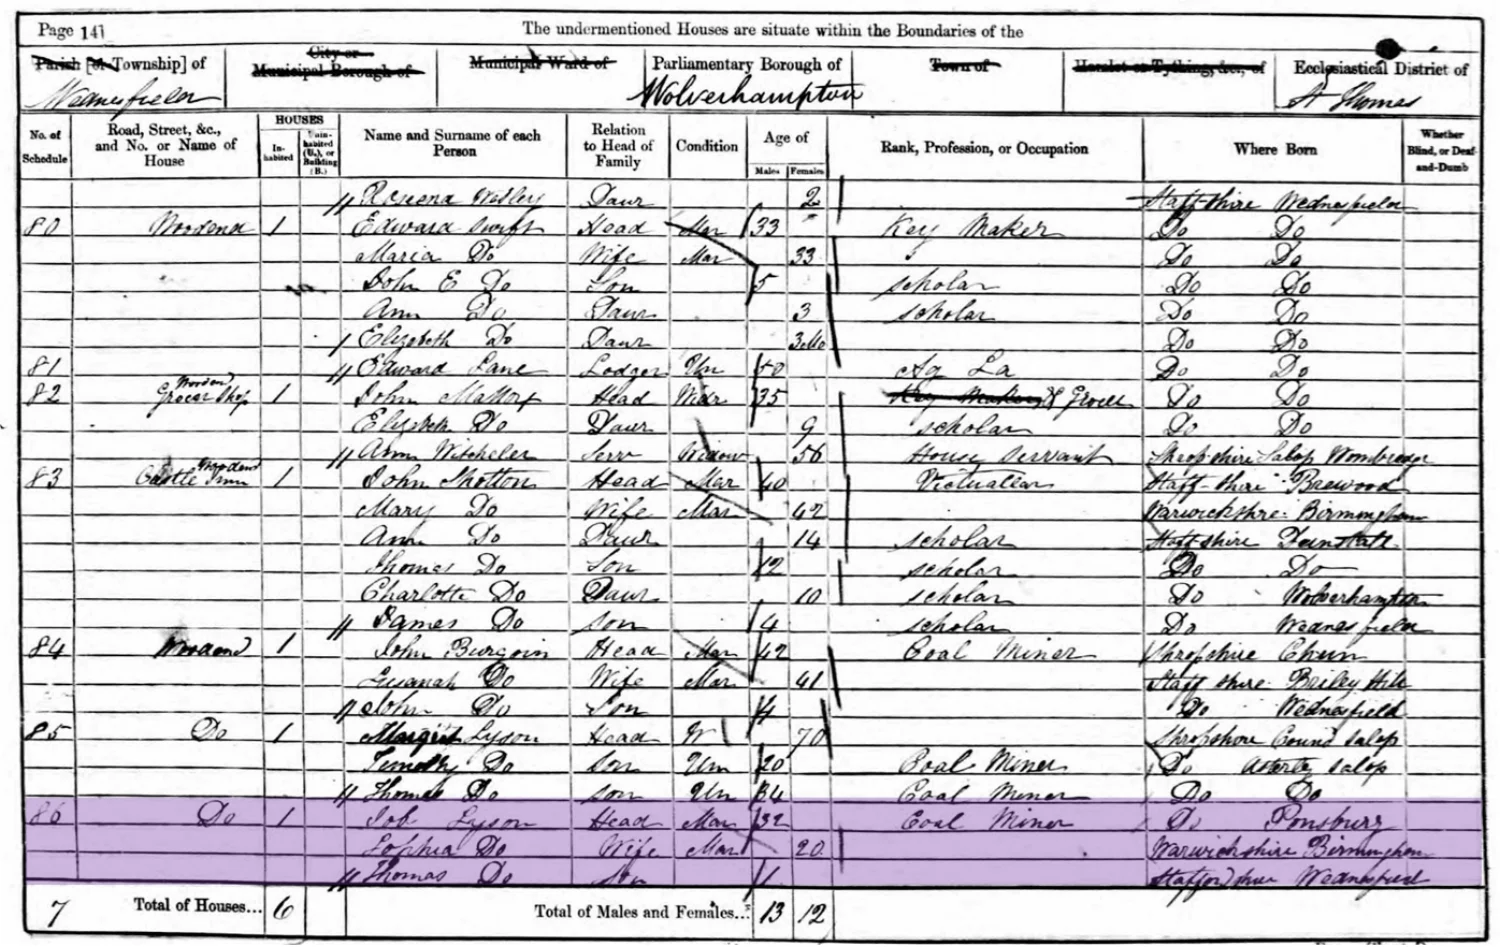 Page 141 The undermentioned Houses are situate within the Boundaries of the
Parish [or Township] of City or Municipal Borough of Municipal Ward of Parliamentary Borough of Town of Hamlet or Tything, &c., of Ecclesiastical District of
Wednesfield Wolverhampton St Thomas
No. of Schedule Road, Street, &c., and No. or Name of House HOUSES Inhabited Uninhabited (U.), or Building (B.) Name and Surname of each Person Relation to Head of Family Condition Age of Males Females Rank, Profession, or Occupation Where Born Whether Blind, or Deaf-and-Dumb
Daur 2 Staff-shire Wednesfield
80 Woodend 1 Edward Swift Head Mar 33 Key Maker Do Do
Maria Do Wife Mar 33 Do Do
John E Do Son 5 scholar Do Do
Ann Do Daur 3 scholar Do Do
Elizabeth Do Daur 3 Mo Do Do
81 Edward Lane Lodger Un 50 Ag La Do Do
82 Woodend Grocer Shop 1 John Head Widr 35 Key Maker & Grocer Do Do
Elizabeth Do Daur 9 scholar Do Do
Ann Serv Widow 56 House Servant Shropshire Salop
83 Woodend Castle Inn 1 John Shotton Head Mar 40 Victualler Staff-shire Brewood
Mary Do Wife Mar 42 Warwickshire Birmingham
Ann Do Daur 14 scholar Staffshire
Thomas Do Son 12 scholar Do Do
Charlotte Do Daur 10 scholar Do Wolverhampton
James Do Son 4 scholar Do Wednesfield
84 Woodend 1 John Burgoin Head Mar 42 Coal Miner Shropshire
Susanah Do Wife Mar 41 Staffshire Briley Hill
John Do Son 4 Do Wednesfield
85 Do 1 Lyson Head W 70 Shropshire Cound Salop
Timothy Do Son Un 20 Coal Miner Do Salop
Thomas Do Son Un 34 Coal Miner Do Do
86 Do 1 Job Lyson Head Mar 32 Coal Miner Do Ponsbury
Sophia Do Wife Mar 20 Warwickshire Birmingham
Thomas Do Son 1 Staffordshire Wednesfield
7 Total of Houses... 6 Total of Males and Females... 13 12